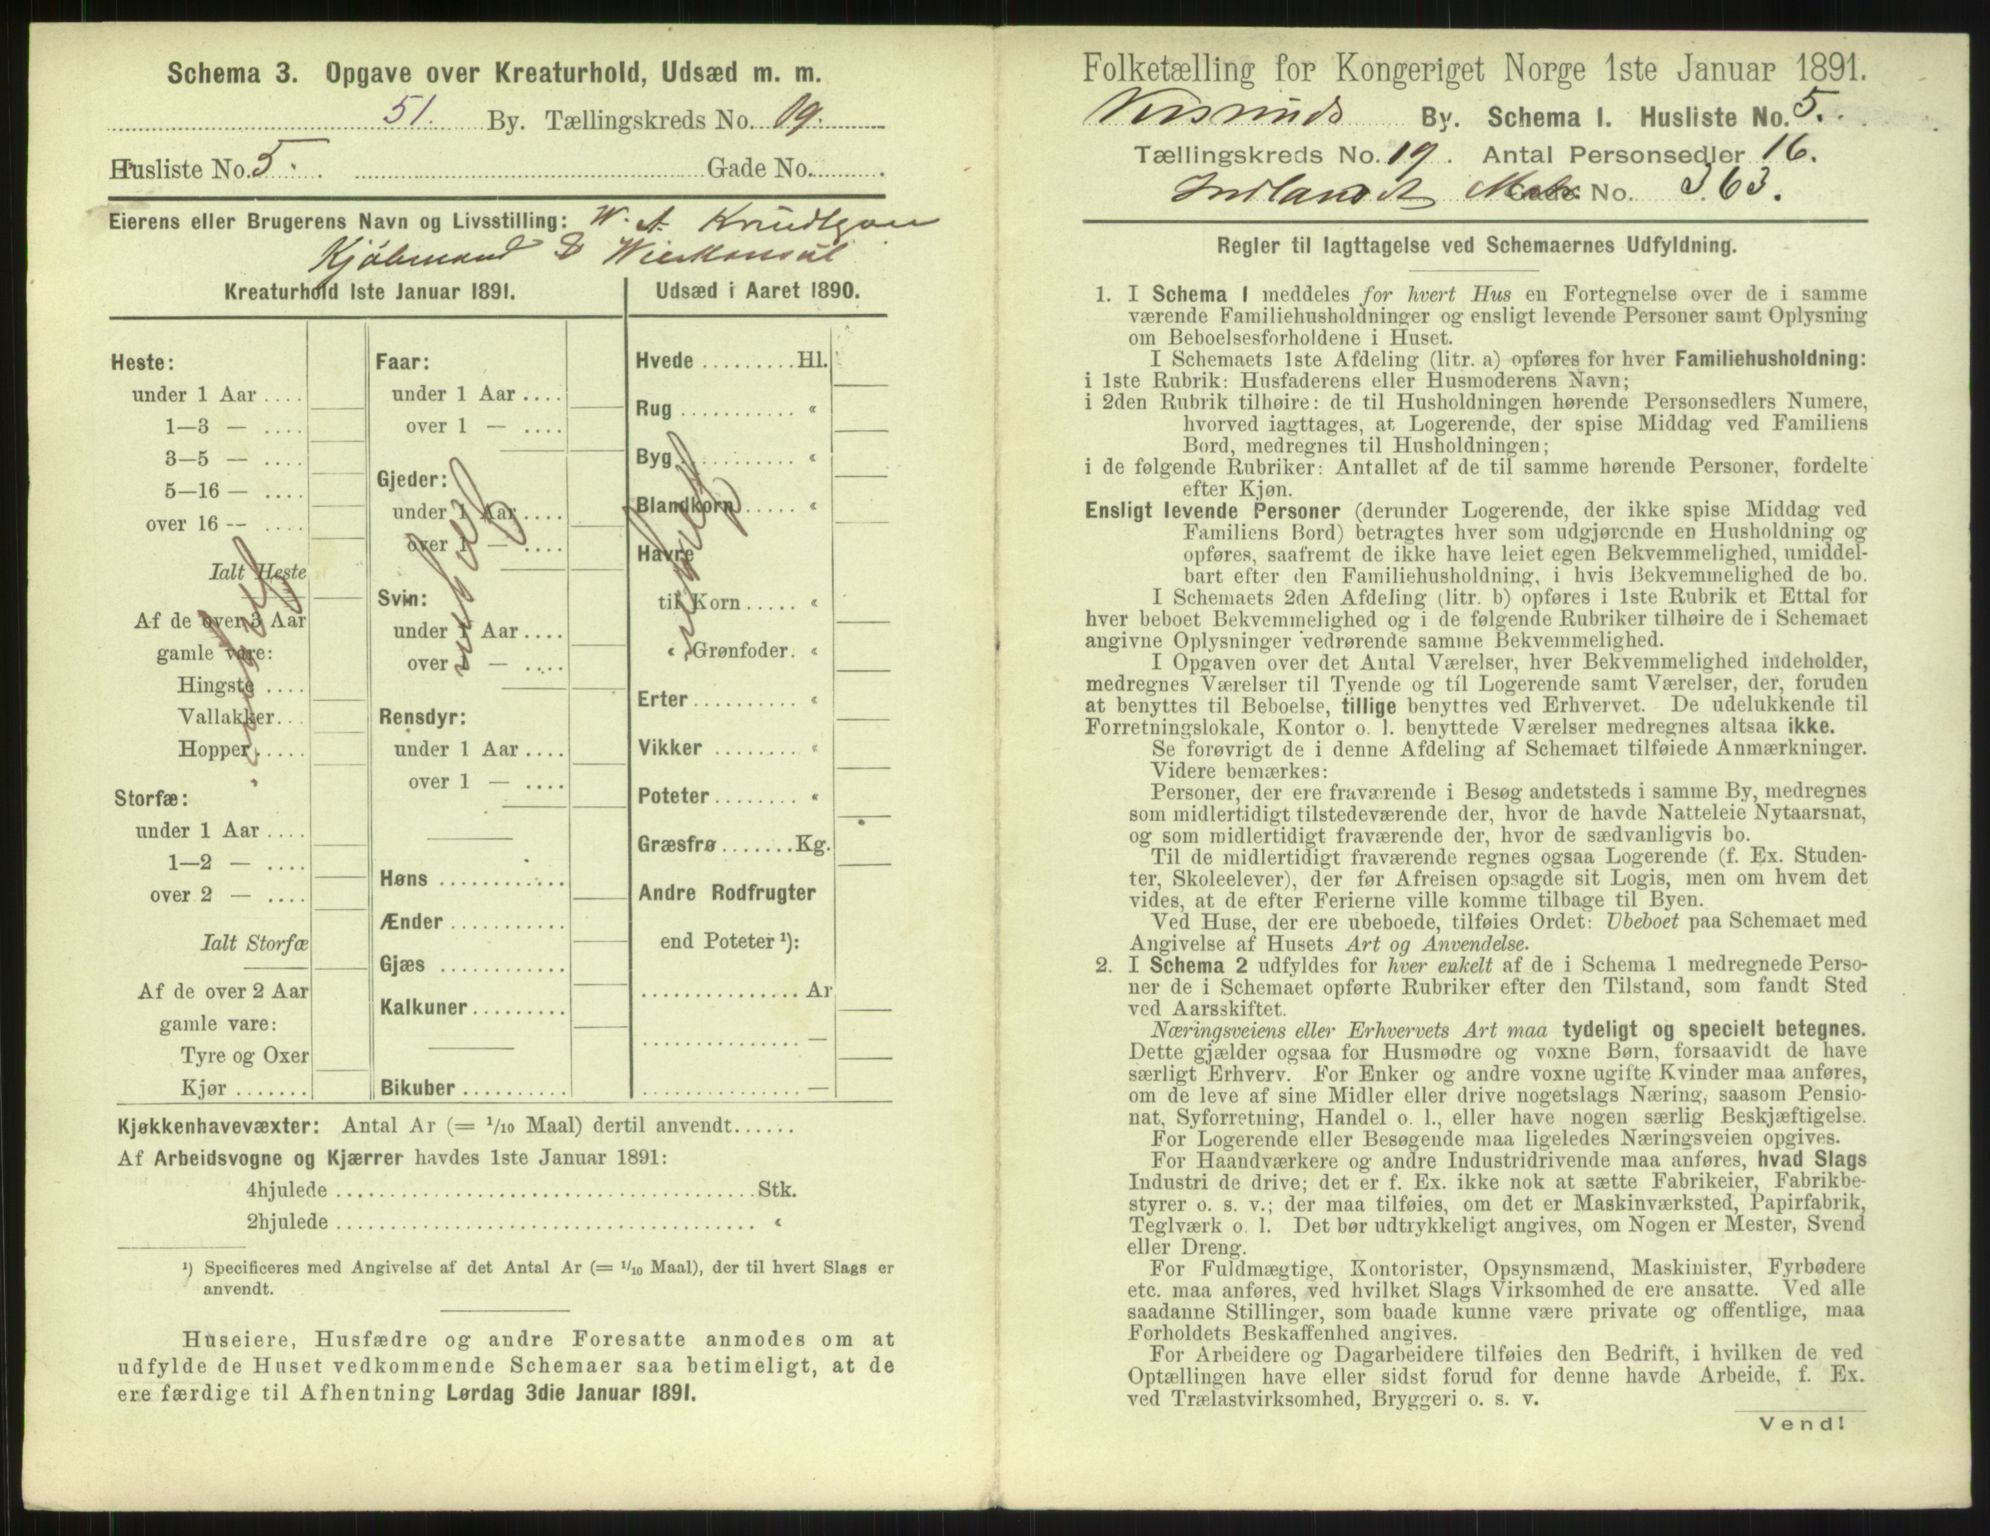 Schema 3. Opgave over Kreaturhold, Udsæd m. m.
51. By. Tællingskreds No. 19.
Husliste No. 5. Gade No.
Eierens eller Brugerens Navn og Livsstilling: W. A. Knudtzon
Kjøbmand & Vicekonsul
Kreaturhold 1ste Januar 1891.
Heste:
under 1 Aar
1—3 —
3—5 —
5—16 —
over 16 --
Ialt Heste
Af de over 3 Aar
gamle vare:
Hingste
Vallakker
Hopper
Storfæ:
under 1 Aar
1—2 —
over 2 —
Ialt Storfæ
Af de over 2 Aar
gamle vare:
Tyre og Oxer
Kjør
Faar:
under 1 Aar
over 1 —
Gjeder:
under 1 Aar
over 1 —
Svin:
under 1 Aar
over —
Rensdyr:
under 1 Aar
over 1 —
Høns
Ænder
Gjæs
Kalkuner
Bikuber
Udsæd i Aaret 1890.
Hvede Hl.
Rug "
Byg "
Blandkorn "
Havre
til Korn "
" Grønfoder. "
Erter "
Vikker "
Poteter "
Græsfrø Kg.
Andre Rodfrugter
end Poteter ¹):
Ar
—
—
Kjøkkenhavevæxter: Antal Ar (= 1/10 Maal) dertil anvendt
Af Arbeidsvogne og Kjærrer havdes 1ste Januar 1891:
4hjulede Stk.
2hjulede "
¹) Specificeres med Angivelse af det Antal Ar (= 1/10 Maal), der til hvert Slags er
anvendt.
Huseiere, Husfædre og andre Foresatte anmodes om at
udfylde de Huset vedkommende Schemaer saa betimeligt, at de
ere færdige til Afhentning Lørdag 3die Januar 1891.
Folketælling for Kongeriget Norge 1ste Januar 1891.
By. Schema I. Husliste No. 5.
Tællingskreds No. 19. Antal Personsedler 16.
Indlandet Matr. No. 363.
Regler til Iagttagelse ved Schemaernes Udfyldning.
1. I Schema I meddeles for hvert Hus en Fortegnelse over de i samme
værende Familiehusholdninger og ensligt levende Personer samt Oplysning
om Beboelsesforholdene i Huset.
I Schemaets 1ste Afdeling (litr. a) opføres for hver Familiehusholdning:
i 1ste Rubrik: Husfaderens eller Husmoderens Navn;
i 2den Rubrik tilhøire: de til Husholdningen hørende Personsedlers Numere,
hvorved iagttages, at Logerende, der spise Middag ved Familiens
Bord, medregnes til Husholdningen;
i de følgende Rubriker: Antallet af de til samme hørende Personer, fordelte
efter Kjøn.
Ensligt levende Personer (derunder Logerende, der ikke spise Middag ved
Familiens Bord) betragtes hver som udgjørende en Husholdning og
opføres, saafremt de ikke have leiet egen Bekvemmelighed, umiddel-
bart efter den Familiehusholdning, i hvis Bekvemmelighed de bo.
I Schemaets 2den Afdeling (litr. b) opføres i 1ste Rubrik et Ettal for
hver beboet Bekvemmelighed og i de følgende Rubriker tilhøire de i Schemaet
angivne Oplysninger vedrørende samme Bekvemmelighed.
I Opgaven over det Antal Værelser, hver Bekvemmelighed indeholder,
medregnes Værelser til Tyende og til Logerende samt Værelser, der, foruden
at benyttes til Beboelse, tillige benyttes ved Erhvervet. De udelukkende til
Forretningslokale, Kontor o. l. benyttede Værelser medregnes altsaa ikke.
Se forøvrigt de i denne Afdeling af Schemaet tilføiede Anmærkninger.
Videre bemærkes:
Personer, der ere fraværende i Besøg andetsteds i samme By, medregnes
som midlertidigt tilstedeværende der, hvor de havde Natteleie Nytaarsnat,
og som midlertidigt fraværende der, hvor de sædvanligvis bo.
Til de midlertidigt fraværende regnes ogsaa Logerende (f. Ex. Studen-
ter, Skoleelever), der før Afreisen opsagde sit Logis, men om hvem det
vides, at de efter Ferierne ville komme tilbage til Byen.
Ved Huse, der ere ubeboede, tilføies Ordet: Ubeboet paa Schemaet med
Angivelse af Husets Art og Anvendelse.
2. I Schema 2 udfyldes for hver enkelt af de i Schema 1 medregnede Perso-
ner de i Schemaet opførte Rubriker efter den Tilstand, som fandt Sted
ved Aarsskiftet.
Næringsveiens eller Erhvervets Art maa tydeligt og specielt betegnes.
Dette gjælder ogsaa for Husmødre og voxne Børn, forsaavidt de have
særligt Erhverv. For Enker og andre voxne ugifte Kvinder maa anføres,
om de leve af sine Midler eller drive nogetslags Næring, saasom Pensio-
nat, Syforretning, Handel o. l., eller have nogen særlig Beskjæftigelse.
For Logerende eller Besøgende maa ligeledes Næringsveien opgives.
For Haandværkere og andre Industridrivende maa anføres, hvad Slags
Industri de drive; det er f. Ex. ikke nok at sætte Fabrikeier, Fabrikbe-
styrer o. s. v.; der maa tilføies, om det er Maskinværksted, Papirfabrik,
Teglværk o. l. Det bør udtrykkeligt angives, om Nogen er Mester, Svend
eller Dreng.
For Fuldmægtige, Kontorister, Opsynsmænd, Maskinister, Fyrbødere
etc. maa anføres, ved hvilket Slags Virksomhed de ere ansatte. Ved alle
saadanne Stillinger, som baade kunne være private og offentlige, maa
Forholdets Beskaffenhed angives.
For Arbeidere og Dagarbeidere tilføies den Bedrift, i hvilken de ved
Optællingen have eller sidst forud for denne havde Arbeide, f. Ex.
ved Trælastvirksomhed, Bryggeri o. s. v.
Vend!